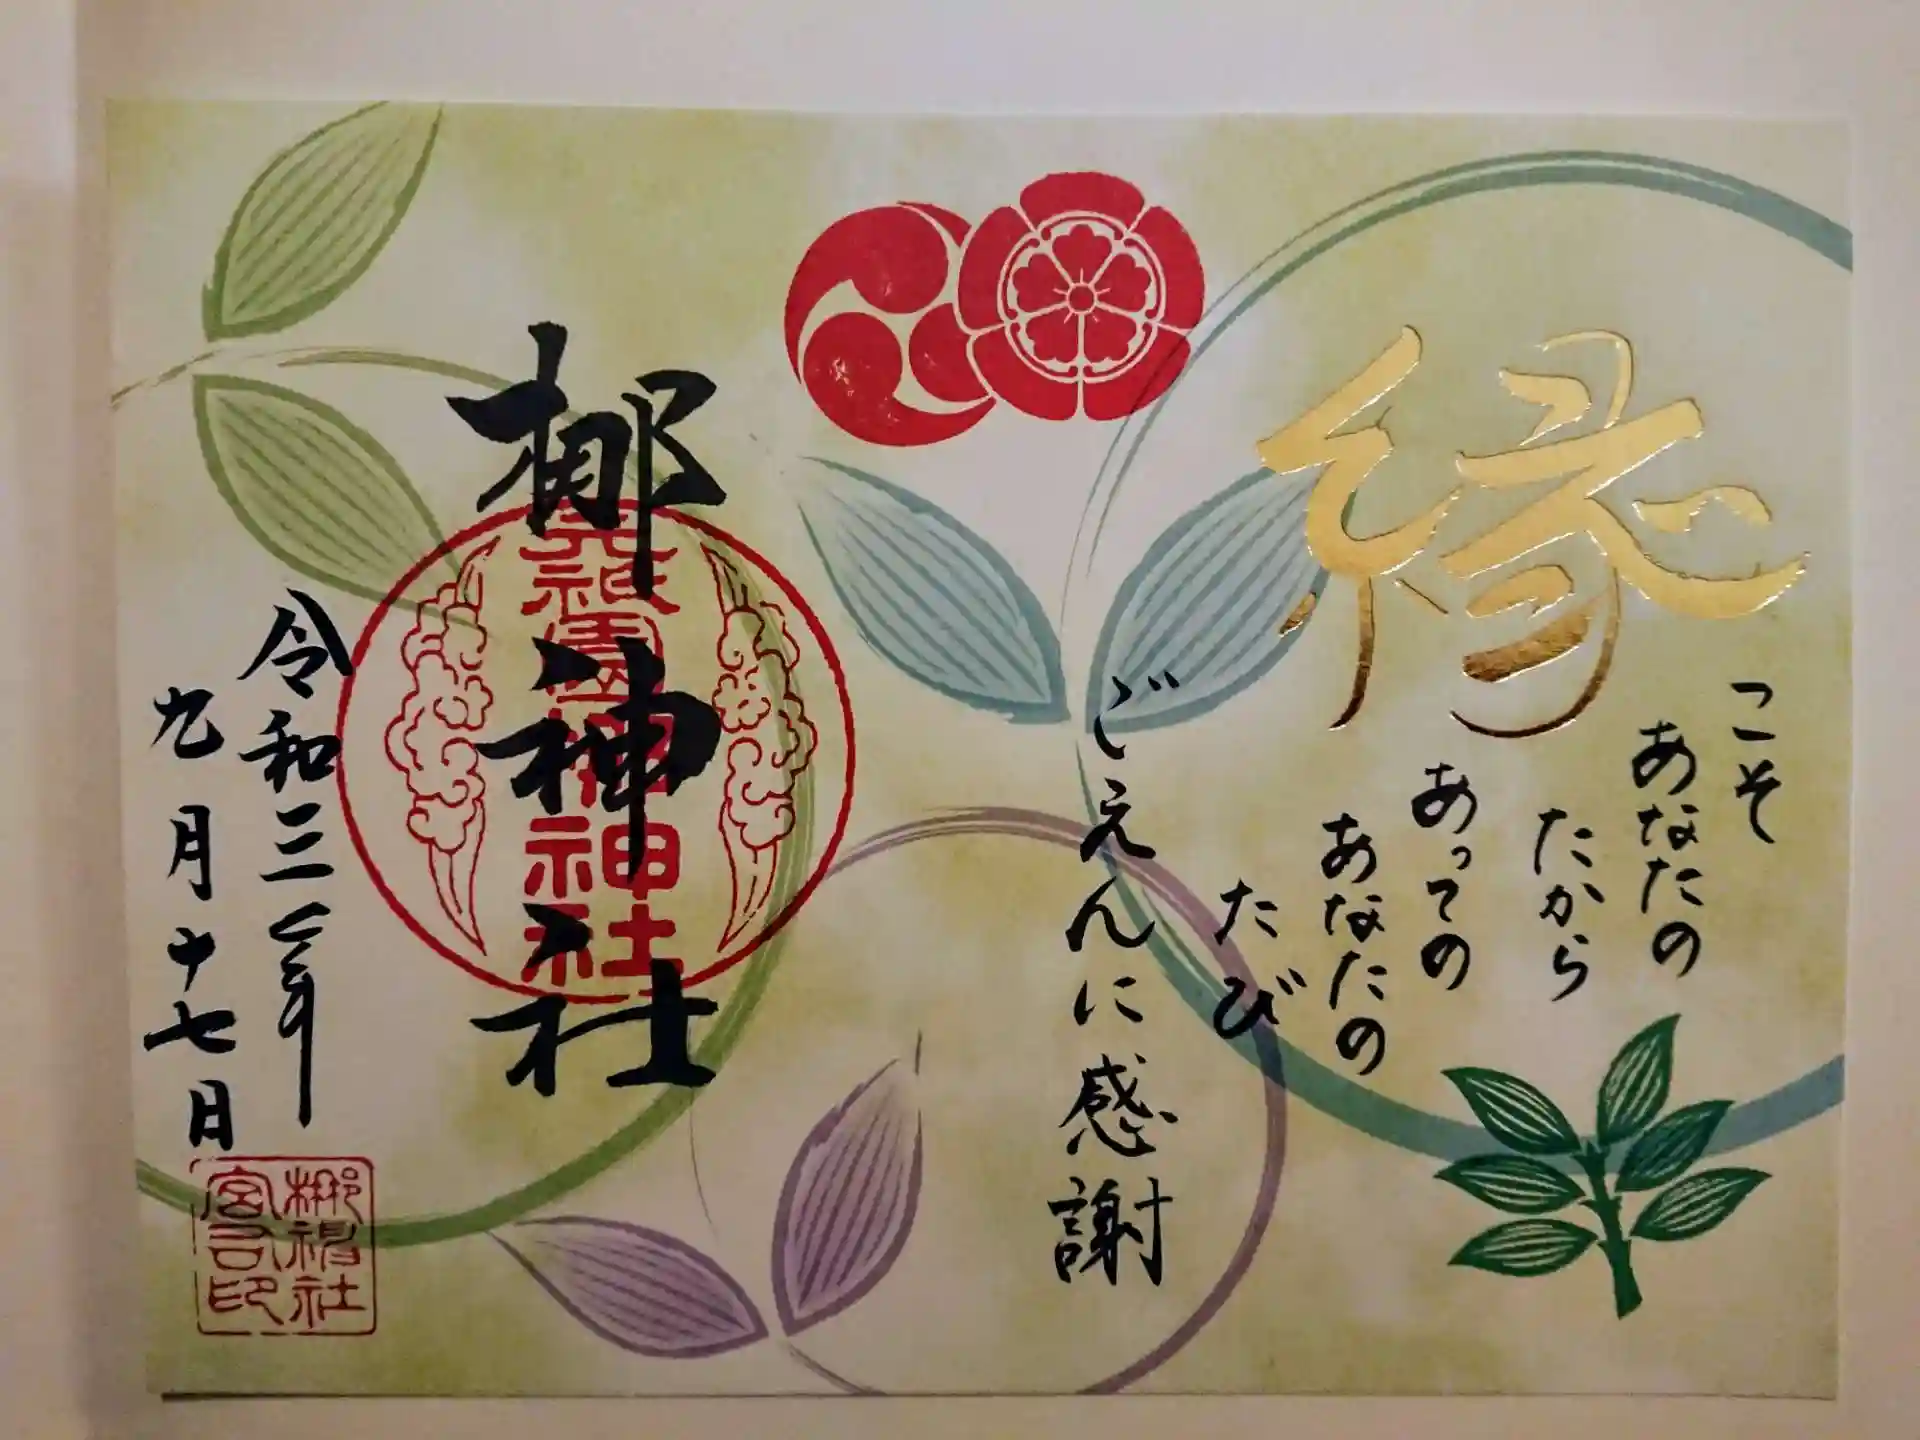 縁
こそ
あなたの
たから
あっての
あなたの
たび
ごえんに感謝
梛神社
元祇園梛神社
令和三年
九月十七日
梛神社
宮司印